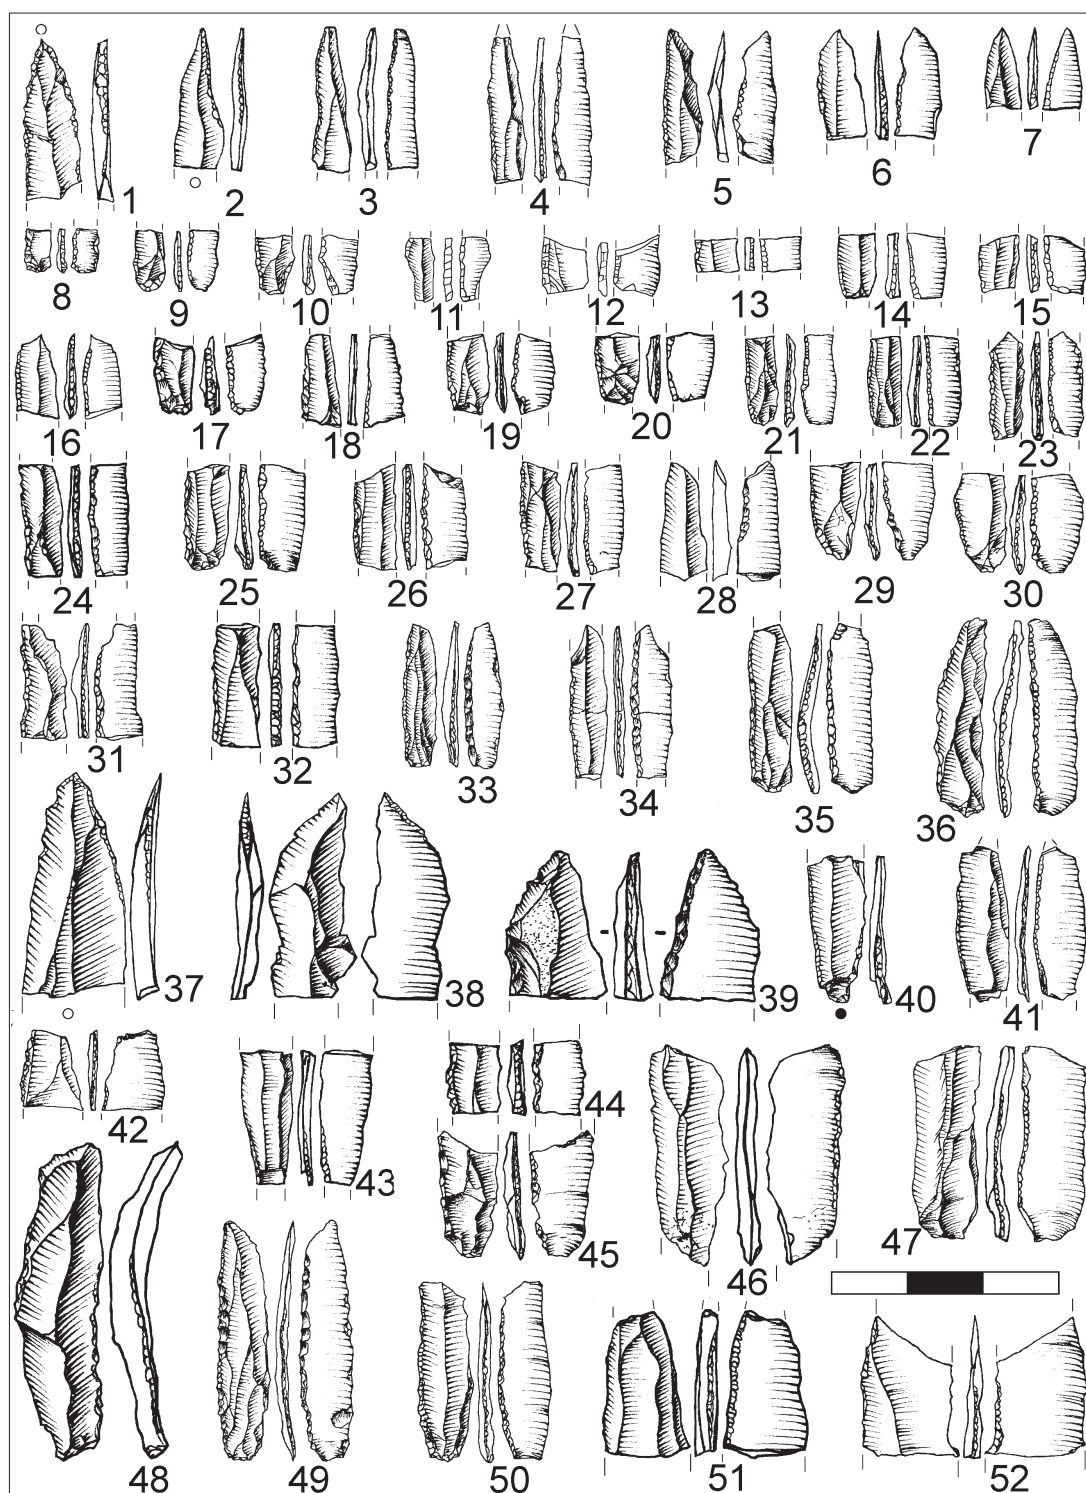 1 2 3 4 5 6 7
8 9 10 11 12 13 14 15
16 17 18 19 20 21 22 23
24 25 26 27 28 29 30
31 32 33 34 35 36
37 38 39 40 41
42 43 44
45 46 47
48 49 50 51 52